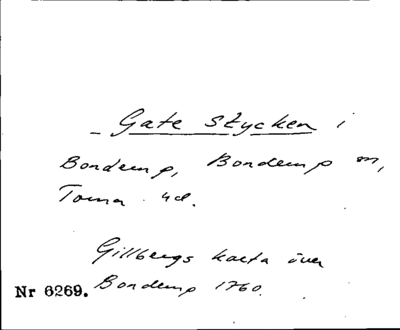 – Gate Stycken i
Bondemp, Bondemp sn,
Toma hd.
Gillbergs karta över
Nr 6269. Bondemp 1760.